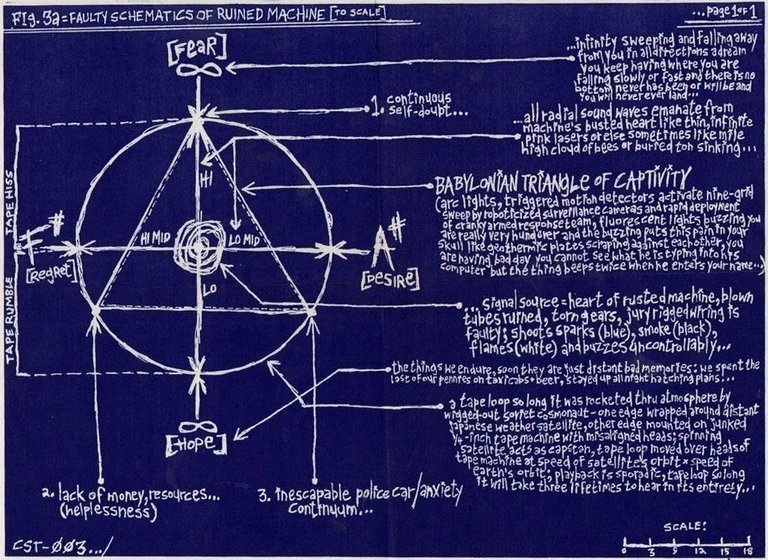 FIG. 3a=FAULTY SCHEMATICS OF RUINED MACHINE [TO SCALE]
...page 1 of 1
[FEAR]
∞
...infinity sweeping and falling away
from you in all directions a dream
you keep having where you are
falling slowly or fast and there is no
bottom never has been or will be and
you will never ever land...
1. continuous
self-doubt...
...all radial sound waves emanate from
machine's busted heart like thin, infinite
pink lasers or else sometimes like mile
high cloud of bees or buried ton sinking...
TAPE HISS
HI
BABYLONIAN TRIANGLE OF CAPTIVITY
(arc lights, triggered motion detectors activate nine-grid
sweep by roboticized surveillance cameras and rapid deployment
of cranky armed response team, fluorescent lights buzzing you
are really very hungover and the buzzing puts this pain in your
skull like geothermic plates scraping against each other, you
are having bad day you cannot see what he is typing into his
computer but the thing beeps twice when he enters your name...)
F#
[REGRET]
HI MID
LO MID
A#
[DESIRE]
LO
TAPE RUMBLE
...signal source=heart of rusted machine, blown
tubes ruined, torn gears, jury rigged wiring is
faulty; shoots sparks (blue), smoke (black),
flames (white) and buzzes uncontrollably...
the things we endure, soon they are just distant bad memories: we spent the
last of our pennies on taxicabs+beer, stayed up all night hatching plans...
∞
[HOPE]
a tape loop so long it was rocketed thru atmosphere by
wigged-out soviet cosmonaut-one edge wrapped around distant
japanese weather satellite, other edge mounted on junked
1/4-inch tape machine with misaligned heads; spinning
satellite acts as capstan, tape loop moved over heads of
tape machine at speed of satellite's orbit x speed of
earth's orbit; playback is sporadic, tape loop so long
it will take three lifetimes to hear in its entirety...
2. lack of money, resources...
(helplessness)
3. inescapable police car/anxiety
continuum...
CST-ØØ3.../
SCALE:
0 3 6 9 12 15 18